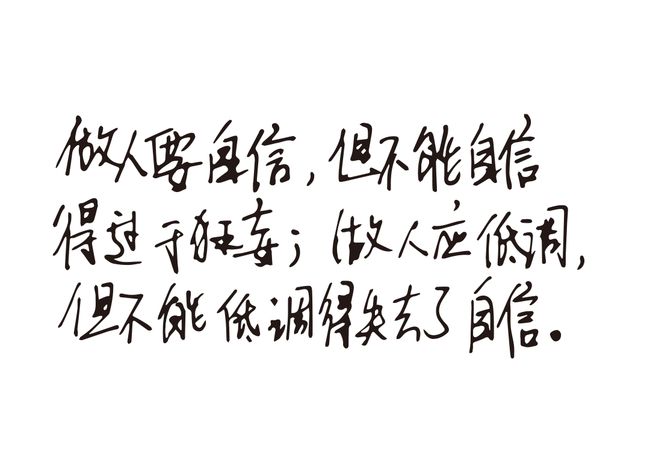 做人要自信，但不能自信
得过于狂妄；做人应低调，
但不能低调得失去了自信。